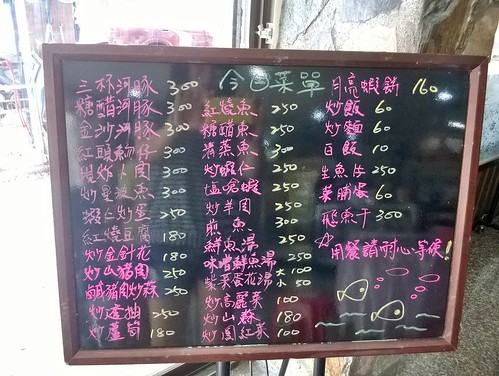 今日菜單
三杯河豚 300
糖醋河豚 300
金沙河豚 300
紅頭魩仔 300
300
300
蝦仁炒蛋 200
紅燒豆腐 180
炒金針花 180
炒山豬肉 250
鹹豬肉炒蒜 250
250
炒蘆筍 180
紅燒魚 250
糖醋魚 250
清蒸魚 300
炒蝦仁 250
鹽焗蝦 250
炒羊肉 250
煎魚 300
鮮魚湯 250
味噌鮮魚湯 250
紫菜蛋花湯 大100 小50
炒高麗菜 100
炒山蘇 180
100
月亮蝦餅 160
炒飯 60
炒麵 60
白飯 10
生魚片 250
菜脯蛋 60
飛魚干 300
用餐請耐心等候!